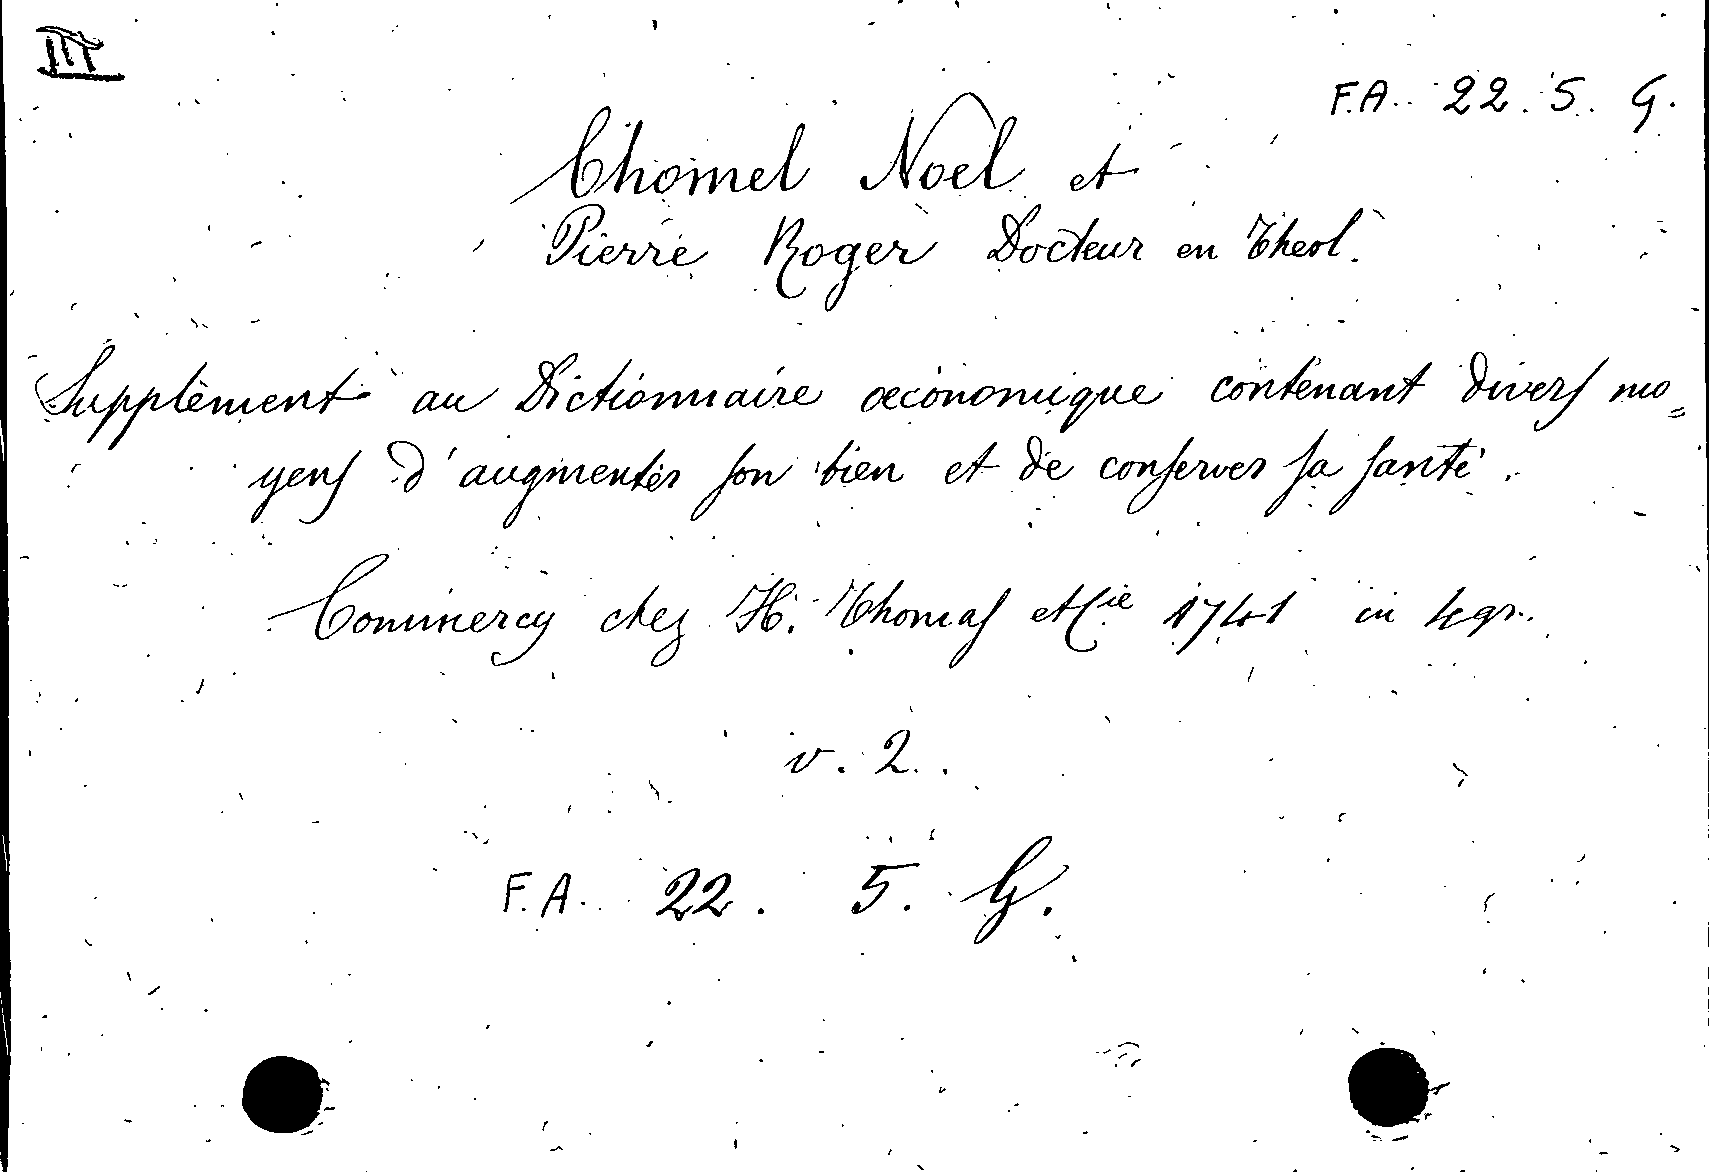 III
F.A. 22. 5. G.
Chomel Noel et
Pierre Roger Docteur en Theol.
Supplèment au Dictionnaire œconomique contenant divers mo=
yens d'augmenter son bien et de conserver sa santé.
Commercy chez H. Thomas et Cie 1741 in 4 gr.
v. 2.
F.A. 22. 5. G.